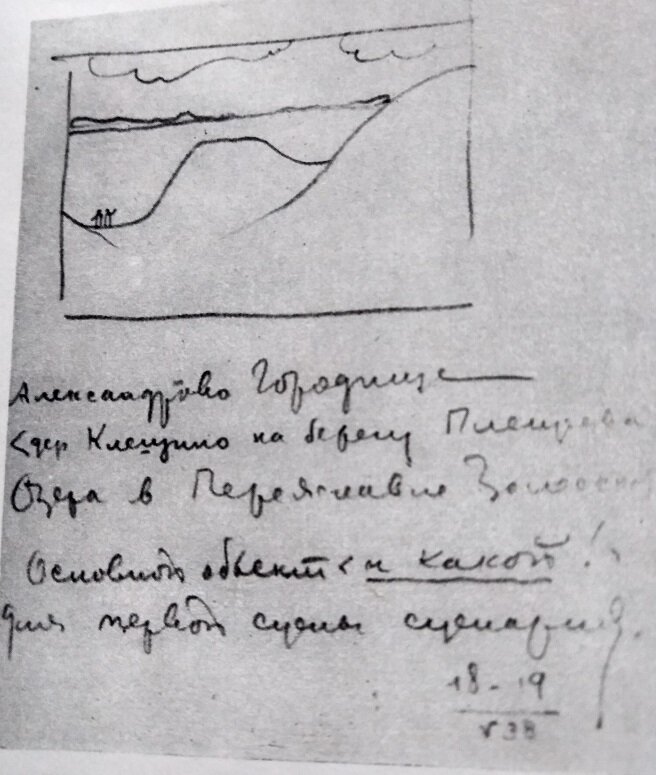 Александрово Городище
<дер Клещино на берегу Плещеева
Озера в Переяславле Залесском
Основной объект < и какой!>
для первой сцены сценария.
18-19
V 38